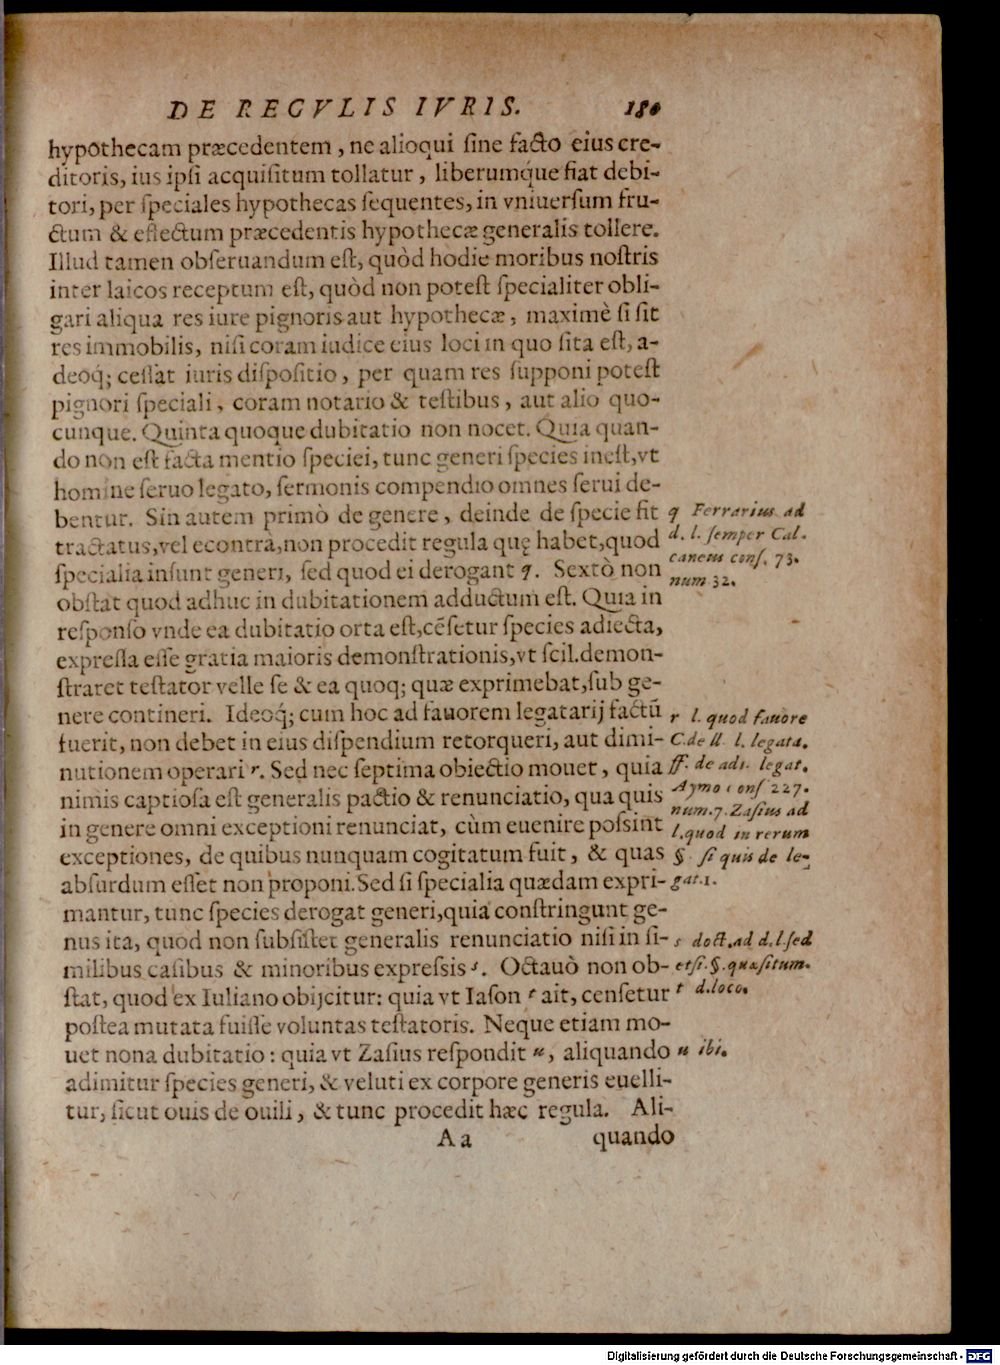 DE REGVLIS IVRIS. 180
hypothecam præcedentem, ne alioqui ſine facto eius cre-
ditoris, ius ipſi acquiſitum tollatur, liberumq́ue fiat debi-
tori, per ſpeciales hypothecas ſequentes, in vniuerſum fru-
ctum & effectum præcedentis hypothecæ generalis tollere.
Illud tamen obſeruandum eſt, quòd hodie moribus noſtris
inter laicos receptum eſt, quòd non poteſt ſpecialiter obli-
gari aliqua res iure pignoris aut hypothecæ, maximè ſi ſit
res immobilis, niſi coram iudice eius loci in quo ſita eſt, a-
deoq́; ceſſat iuris diſpoſitio, per quam res ſupponi poteſt
pignori ſpeciali, coram notario & teſtibus, aut alio quo-
cunque. Quinta quoque dubitatio non nocet. Quia quan-
do non eſt facta mentio ſpeciei, tunc generi ſpecies ineſt, vt
homine ſeruo legato, ſermonis compendio omnes ſerui de-
bentur. Sin autem primò de genere, deinde de ſpecie fit
tractatus, vel econtrà, non procedit regula quę habet, quod
ſpecialia inſunt generi, ſed quod ei derogant q. Sextò non
obſtat quod adhuc in dubitationem adductum eſt. Quia in
reſponſo vnde ea dubitatio orta eſt, cẽſetur ſpecies adiecta,
expreſſa eſſe gratia maioris demonſtrationis, vt ſcil. demon-
ſtraret teſtator velle ſe & ea quoq; quæ exprimebat, ſub ge-
nere contineri. Ideoq́; cum hoc ad fauorem legatarij factũ
fuerit, non debet in eius diſpendium retorqueri, aut dimi-
nutionem operari r. Sed nec ſeptima obiectio mouet, quia
nimis captioſa eſt generalis pactio & renunciatio, qua quis
in genere omni exceptioni renunciat, cùm euenire poſsint
exceptiones, de quibus nunquam cogitatum fuit, & quas
abſurdum eſſet non proponi. Sed ſi ſpecialia quædam expri-
mantur, tunc ſpecies derogat generi, quia conſtringunt ge-
nus ita, quod non ſubſiſtet generalis renunciatio niſi in ſi-
milibus caſibus & minoribus expreſsis s. Octauò non ob-
ſtat, quod ex Iuliano obijcitur: quia vt Iaſon t ait, cenſetur
poſtea mutata fuiſſe voluntas teſtatoris. Neque etiam mo-
uet nona dubitatio: quia vt Zaſius reſpondit u, aliquando
adimitur ſpecies generi, & veluti ex corpore generis euelli-
tur, ſicut ouis de ouili, & tunc procedit hæc regula. Ali-
Aa quando
q Ferrarius ad
d. l. ſemper Cal-
caneus conſ. 73.
num 32.
r l. quod fauore
C. de ll. l. legata.
ff. de adi. legat.
Aymo conſ 227.
num. 7. Zaſius ad
l. quod in rerum
§ ſi quis de le-
gat. 1.
s doct. ad d. l. ſed
etſi. §. quæſitum.
t d. loco.
u ibi.
Digitalisierung gefördert durch die Deutsche Forschungsgemeinschaft - DFG